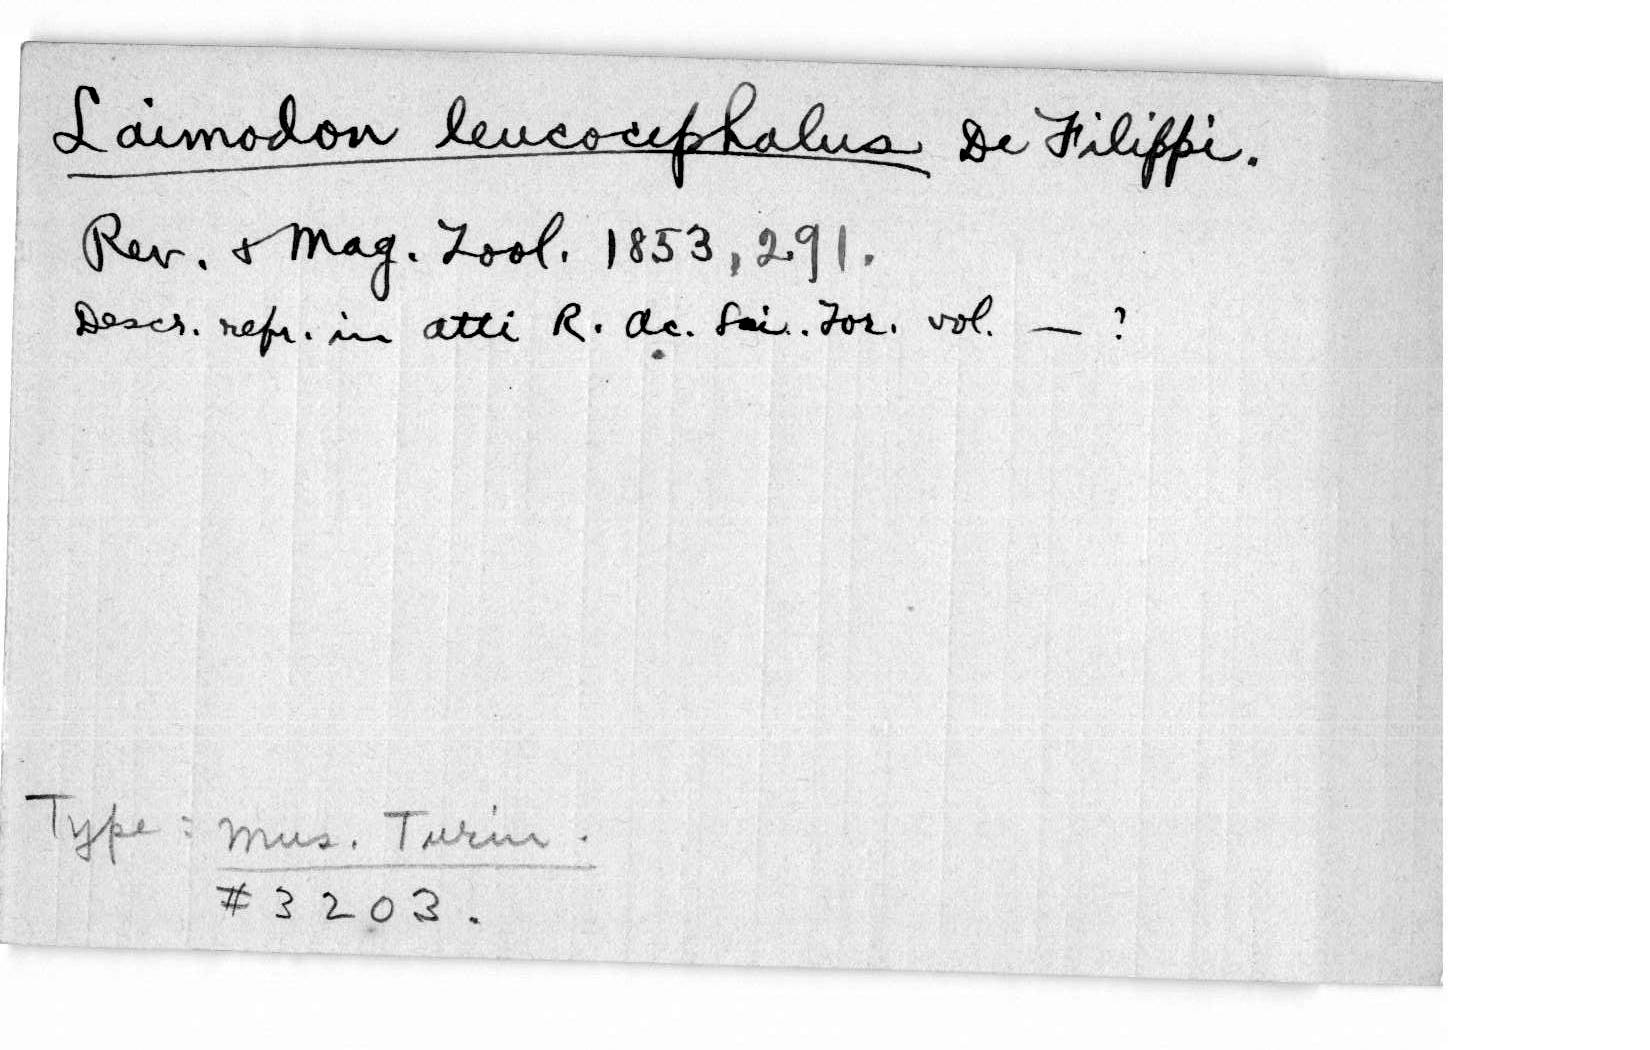 Laimodon leucocephalus De Filippi.
Rev. & Mag. Zool. 1853, 291.
Descr. repr. in atti R. Ac. Sci. Tor. vol. — ?
Type: Mus. Turin.
#3203.